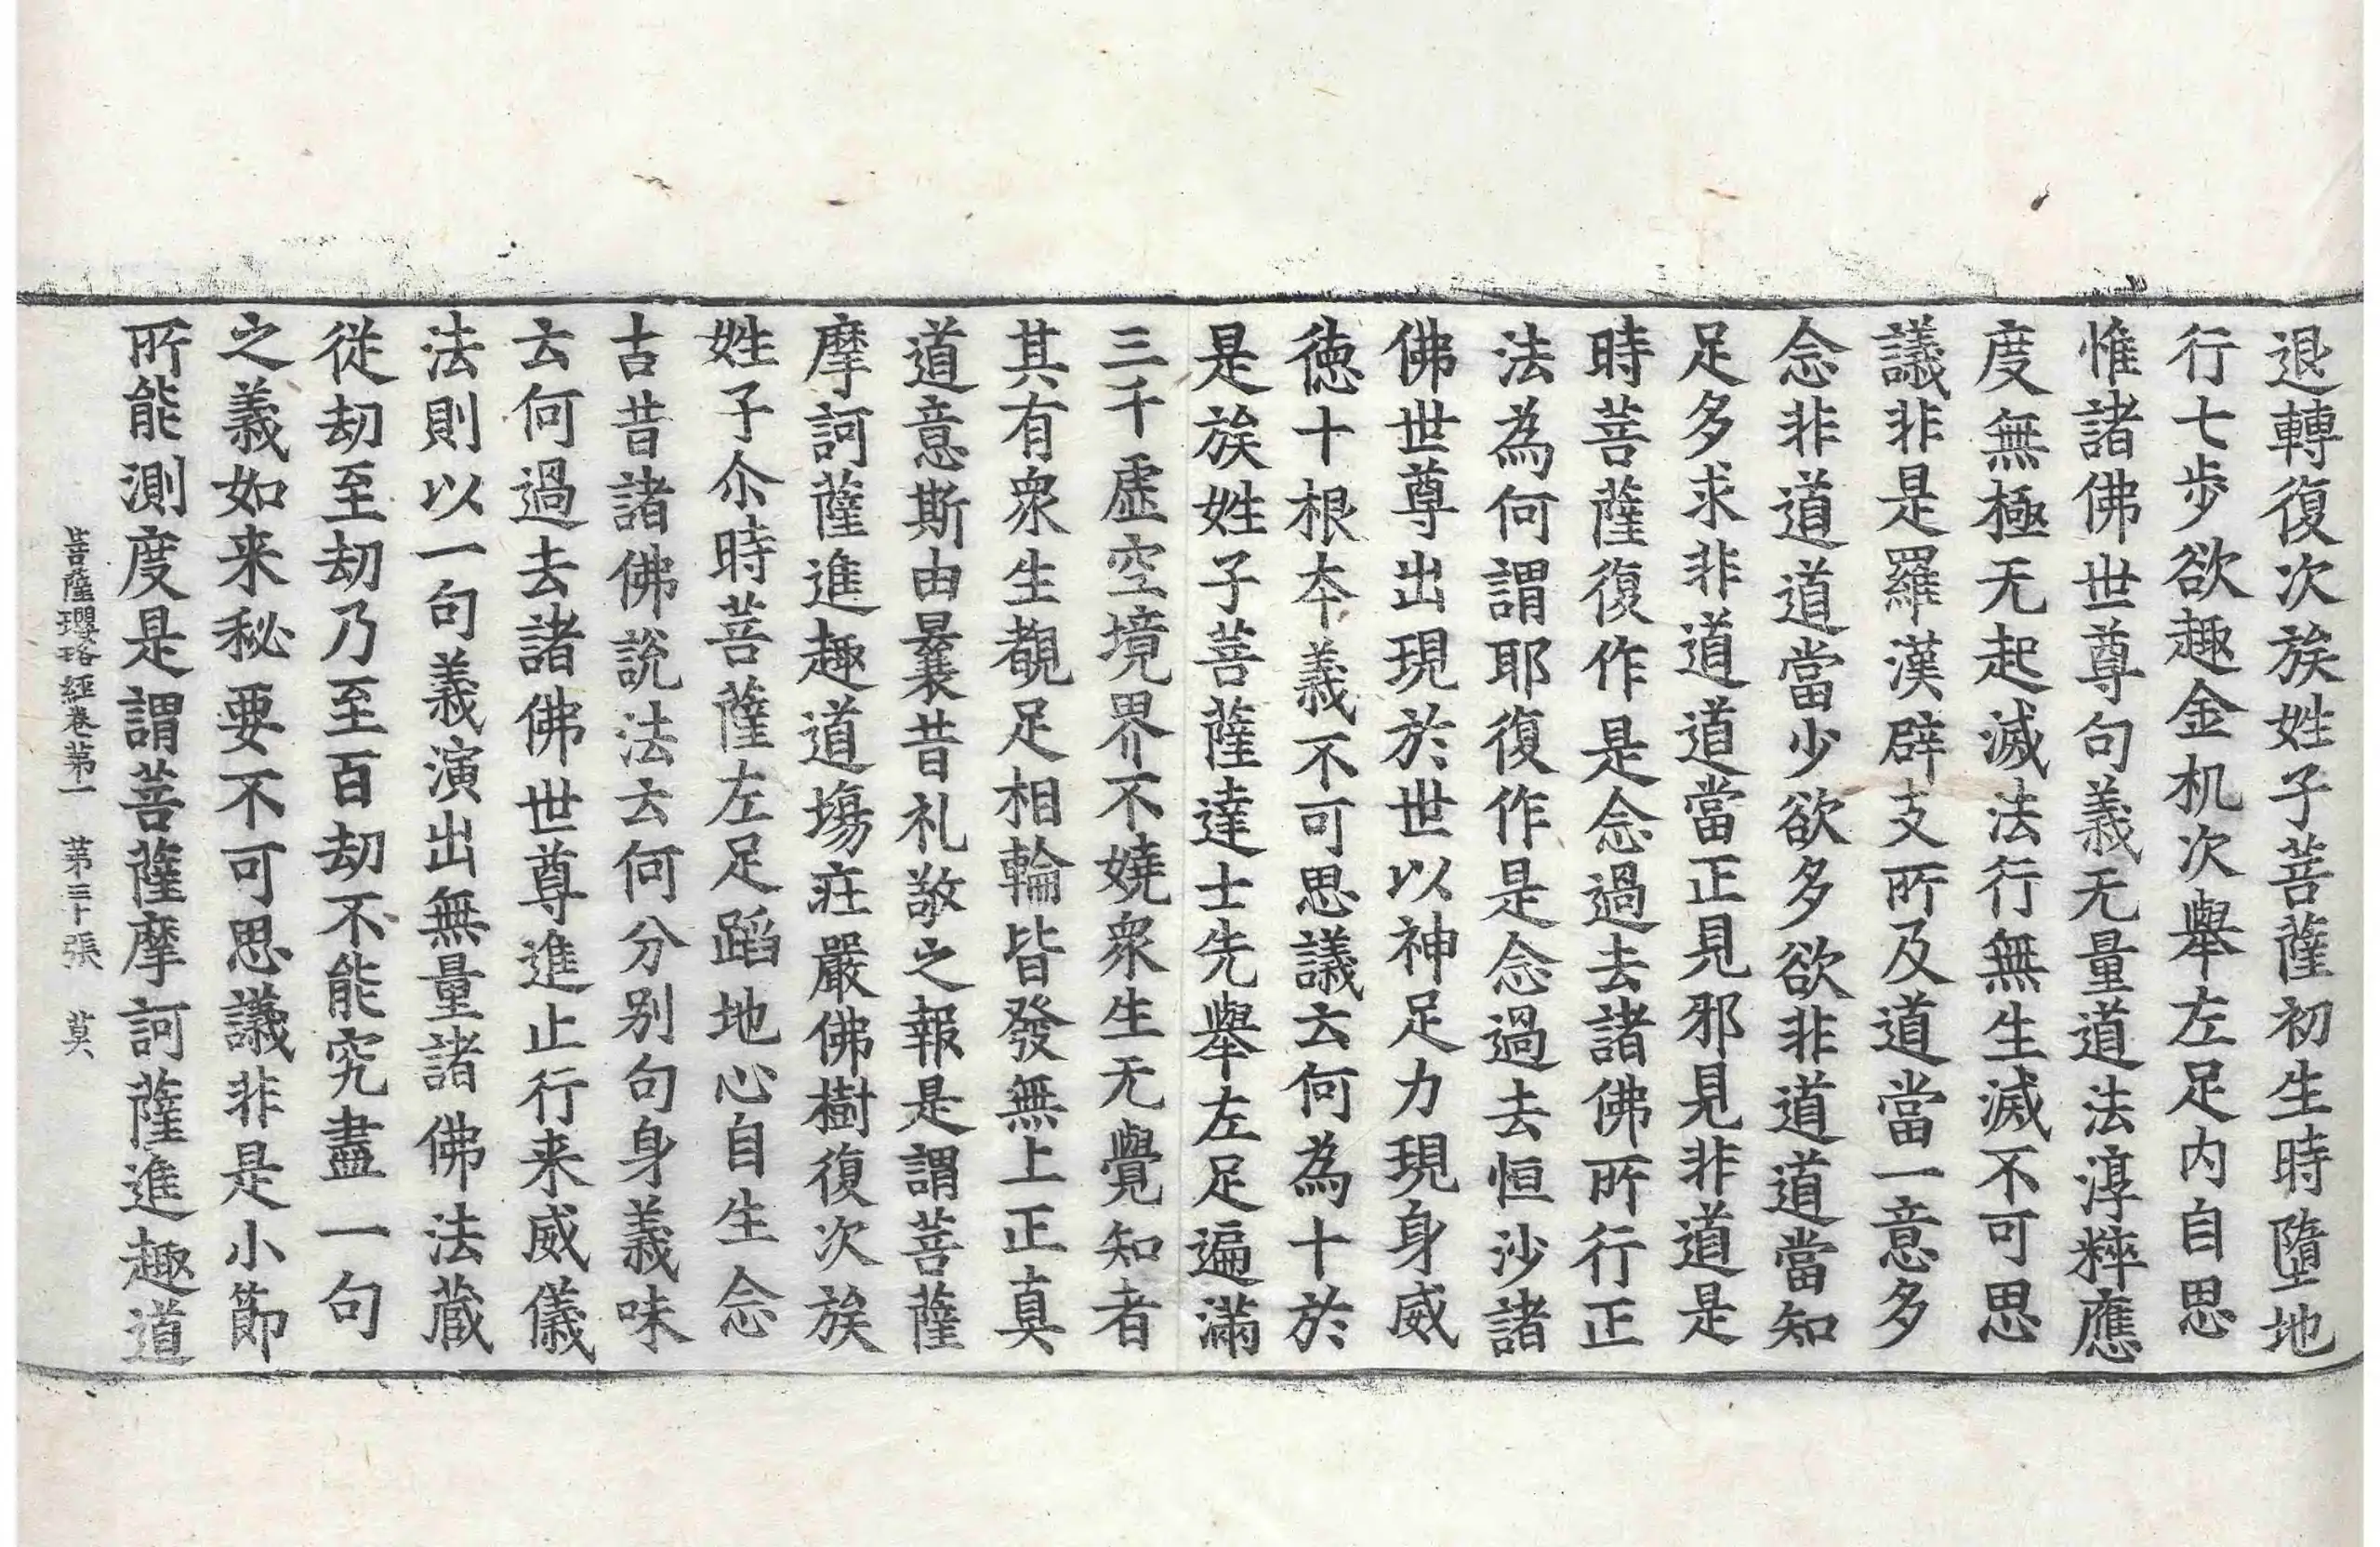 退轉復次族姓子菩薩初生時墮地
行七步欲趣金机次舉左足內自思
惟諸佛世尊句義无量道法淳粹應
度無極无起滅法行無生滅不可思
議非是羅漢辟支所及道當一意多
念非道道當少欲多欲非道道當知
足多求非道道當正見邪見非道是
時菩薩復作是念過去諸佛所行正
法為何謂耶復作是念過去恒沙諸
佛世尊出現於世以神足力現身威
德十根本義不可思議云何為十於
是族姓子菩薩達士先舉左足遍滿
三千虛空境界不嬈眾生无覺知者
其有眾生覩足相輪皆發無上正真
道意斯由曩昔礼敬之報是謂菩薩
摩訶薩進趣道場莊嚴佛樹復次族
姓子尒時菩薩左足蹈地心自生念
古昔諸佛說法云何分別句身義味
云何過去諸佛世尊進止行来威儀
法則以一句義演出無量諸佛法藏
從劫至劫乃至百劫不能究盡一句
之義如来秘要不可思議非是小節
所能測度是謂菩薩摩訶薩進趣道
菩薩瓔珞經卷第一 第三十張 莫